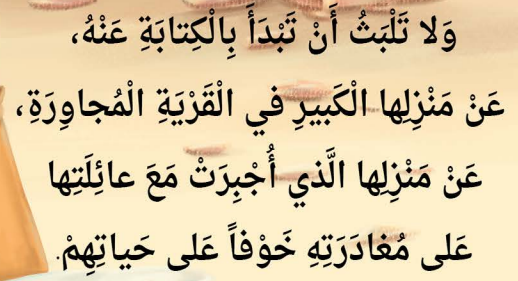 وَلا تَلْبَثُ أَنْ تَبْدَأَ بِالْكِتابَةِ عَنْهُ،
عَنْ مَنْزِلِها الْكَبيرِ في الْقَرْيَةِ الْمُجاوِرَةِ،
عَنْ مَنْزِلِها الَّذي أُجْبِرَتْ مَعَ عائِلَتِها
عَلى مُغادَرَتِهِ خَوْفاً عَلى حَياتِهِمْ.